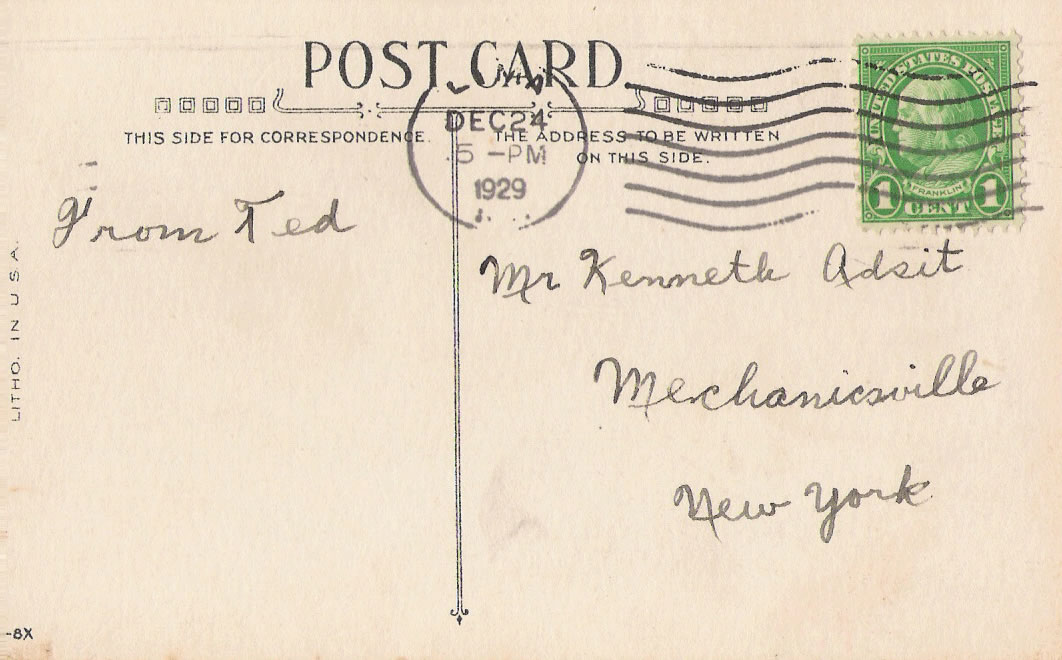 POST CARD
THIS SIDE FOR CORRESPONDENCE.
THE ADDRESS TO BE WRITTEN
ON THIS SIDE.
DEC 24
5 -PM
1929
UNITED STATES POSTAGE
FRANKLIN
1 CENT 1
From Ted
Mr Kenneth Adsit
Mechanicsville
New York
LITHO. IN U.S.A.
-8X